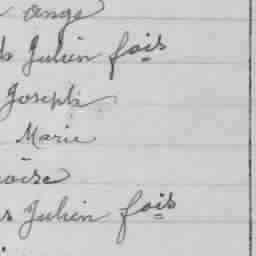 ange
Julien fois
Joseph
Marie
oise
Julien fois